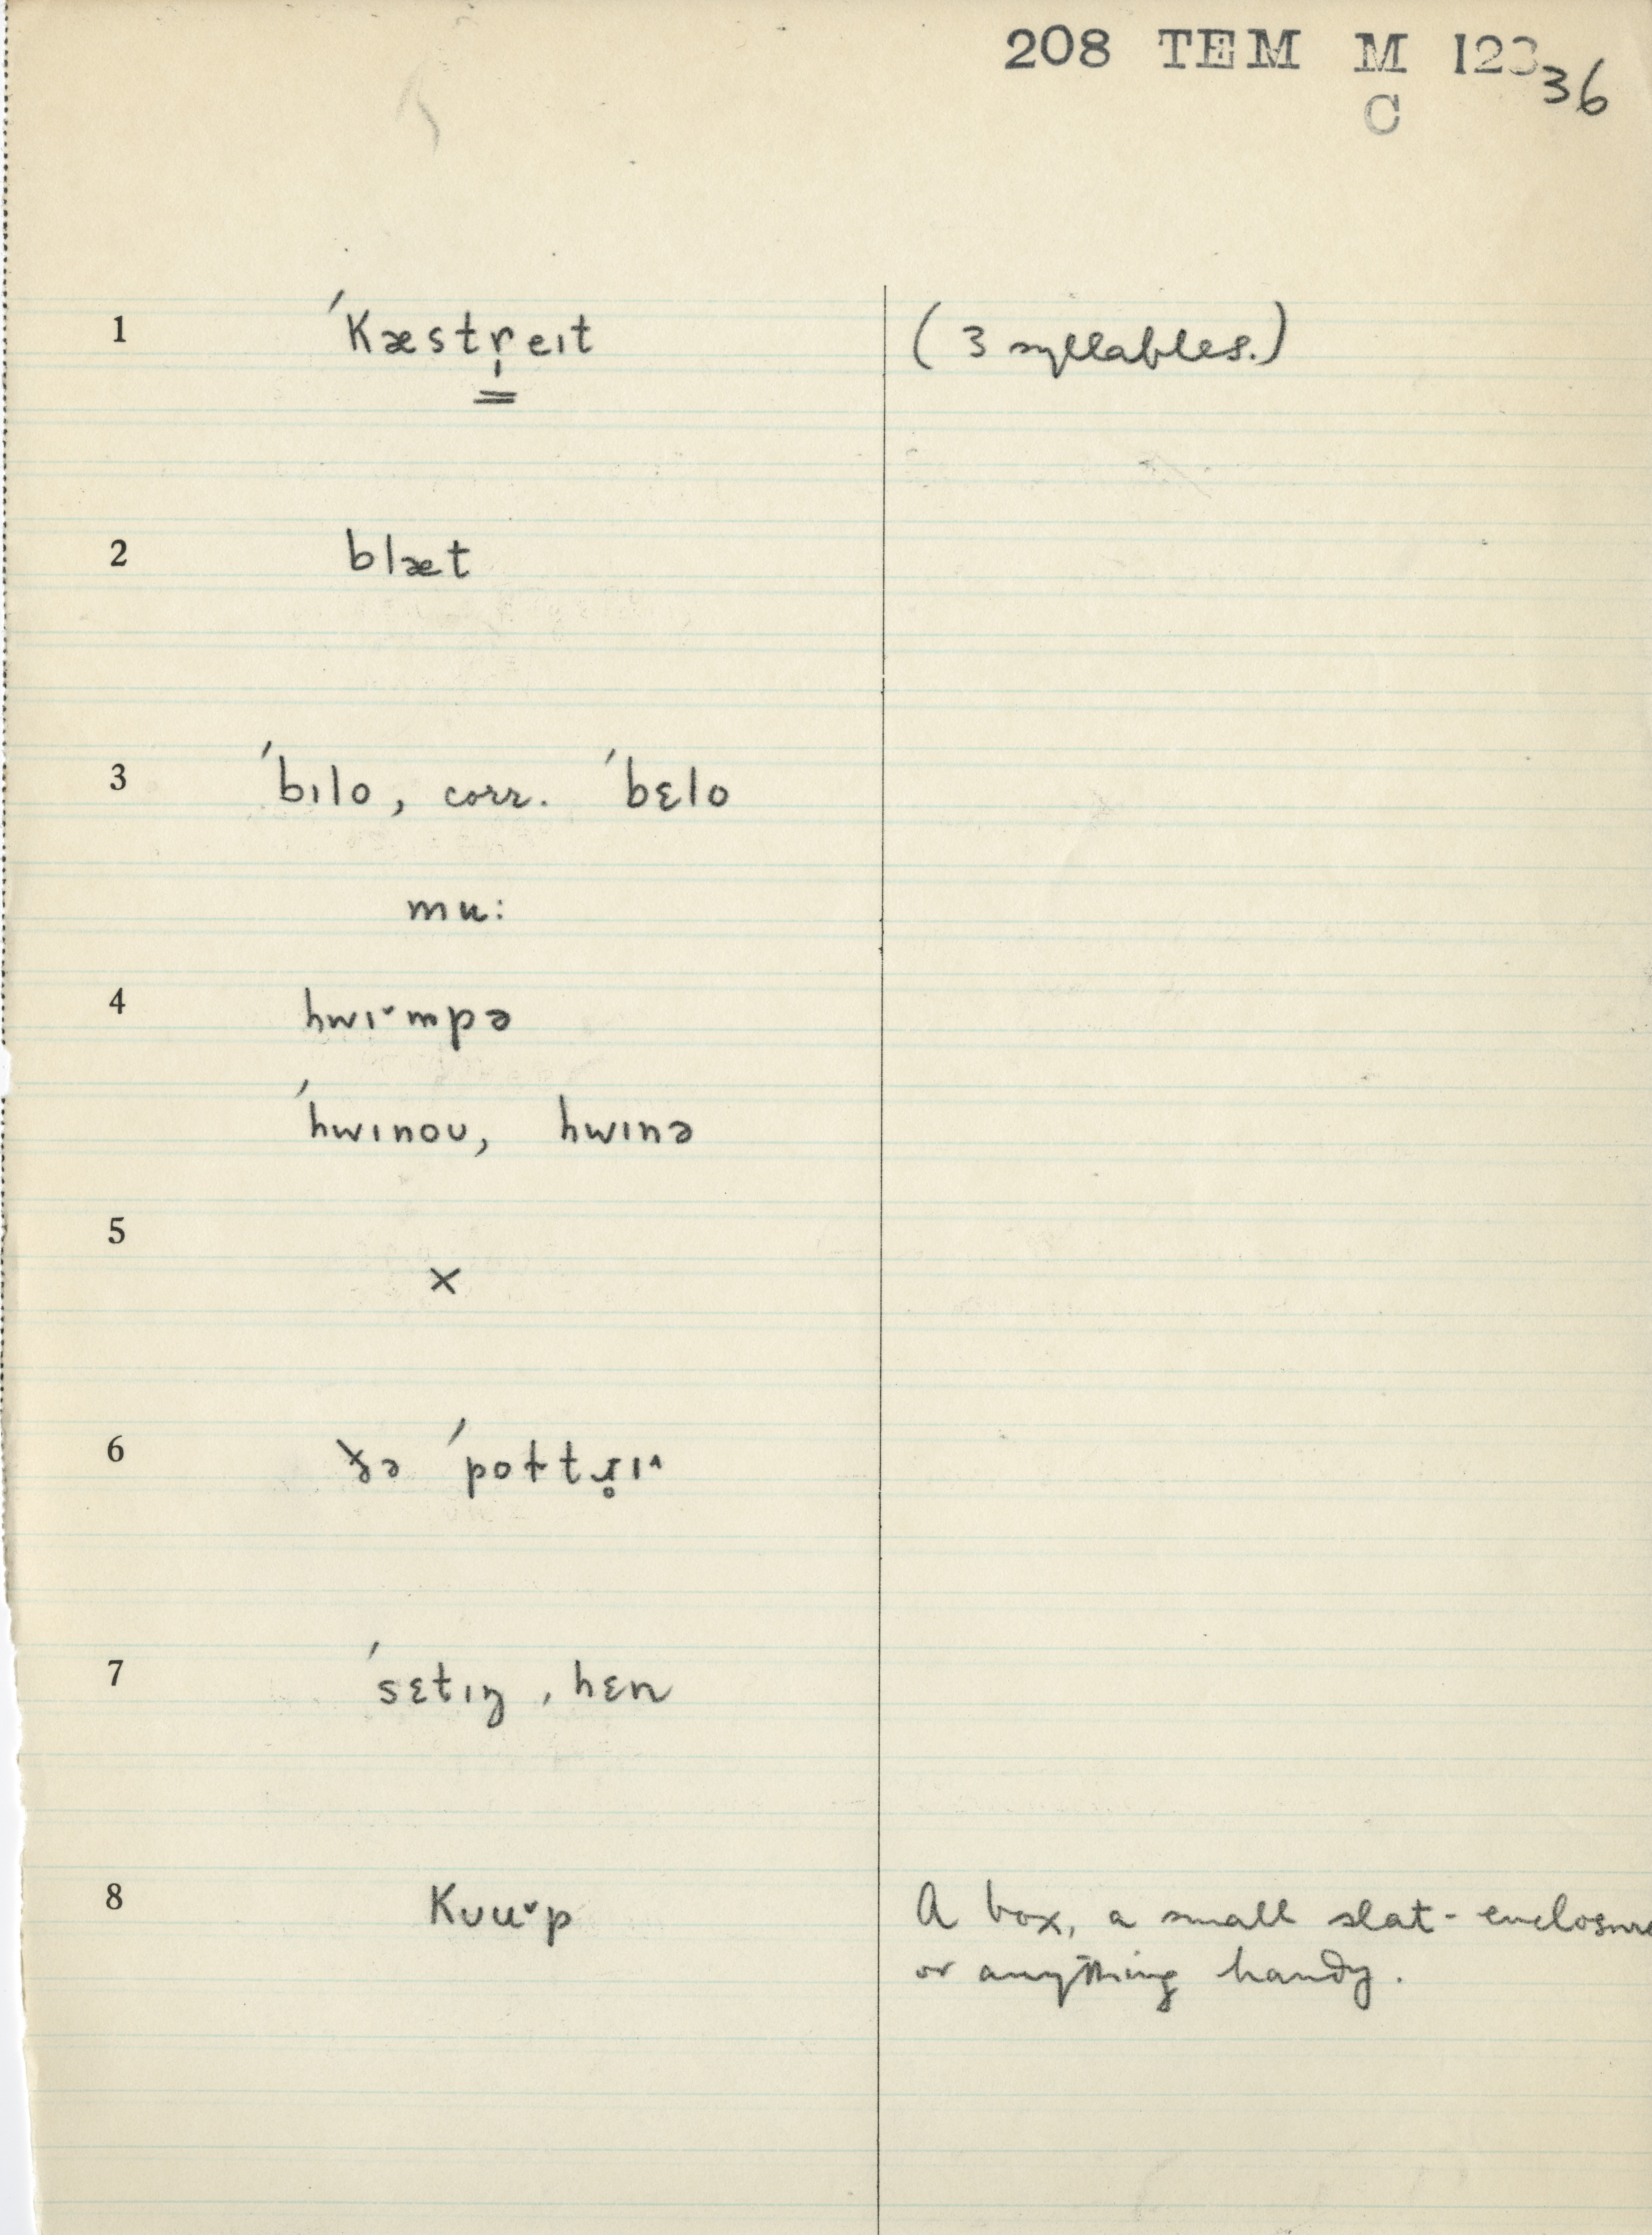 208 TEM M 123 36
C
1 ˈkæstr̩eɪt (3 syllables.)
2 blæt
3 ˈbɪlo, corr. ˈbɛlo
mu:
4 hwɪ˅mpə
ˈhwɪnoʊ, hwɪnə
5 ×
6 ðə ˈpoɫtɹ̥ɪ˄
7 ˈsɛtɪŋ, hɛn
8 kʊu˅p A box, a small slat-enclosure
or anything handy.